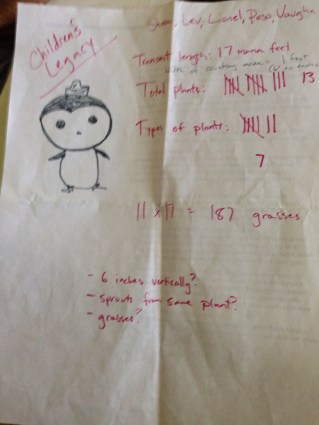 Children's
Legacy
Lev, Lionel, Vaughn
Transect length: 17 mama feet
1 foot
Total plants: 𝍸 𝍸 III 13
Types of plants: 𝍸 II
7
11 x 17 = 187 grasses
- 6 inches vertically?
- sprouts from same plant?
- grasses?